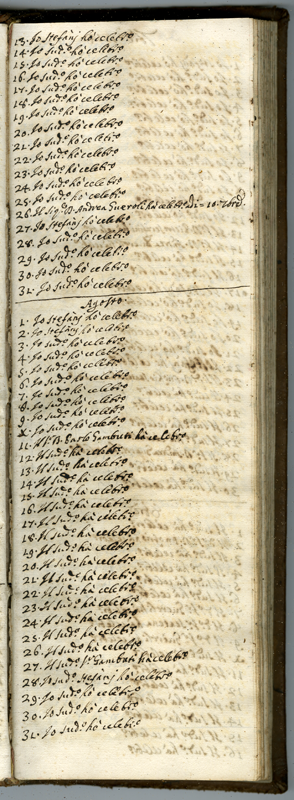 13. Io Stefanj hò celebrº
14. Io Sudº hò celebrº
15. Io Sudº hò celebrº
16. Io Sudº hò celebrº
17. Io Sudº hò celebrº
18. Io Sudº hò celebrº
19. Io Sudº hò celebrº
20. Io Sudº hò celebrº
21. Io Sudº hò celebrº
22. Io Sudº hò celebrº
23. Io Sudº hò celebrº
24. Io Sudº hò celebrº
25. Io Sudº hò celebrº
26. Il Sigr D. Andrea hà celebrº
27. Io Stefanj hò celebrº
28. Io Sudº hò celebrº
29. Io Sudº hò celebrº
30. Io Sudº hò celebrº
31. Io Sudº hò celebrº
Agosto
1. Io Stefanj hò celebrº
2. Io Stefanj hò celebrº
3. Io Sudº hò celebrº
4. Io Sudº hò celebrº
5. Io Sudº hò celebrº
6. Io Sudº hò celebrº
7. Io Sudº hò celebrº
8. Io Sudº hò celebrº
9. Io Sudº hò celebrº
X. Io Sudº hò celebrº
11. Il Sr D. Carlo Gambuti hà celebrº
12. Il Sudº hà celebrº
13. Il Sudº hà celebrº
14. Il Sudº hà celebrº
15. Il Sudº hà celebrº
16. Il Sudº hà celebrº
17. Il Sudº hà celebrº
18. Il Sudº hà celebrº
19. Il Sudº hà celebrº
20. Il Sudº hà celebrº
21. Il Sudº hà celebrº
22. Il Sudº hà celebrº
23. Il Sudº hà celebrº
24. Il Sudº hà celebrº
25. Il Sudº hà celebrº
26. Il Sudº hà celebrº
27. Il Sudº Sr Gambuti hà celebrº
28. Io Sudº Stefanj hò celebrº
29. Io Sudº hò celebrº
30. Io Sudº hò celebrº
31. Io Sudº hò celebrº